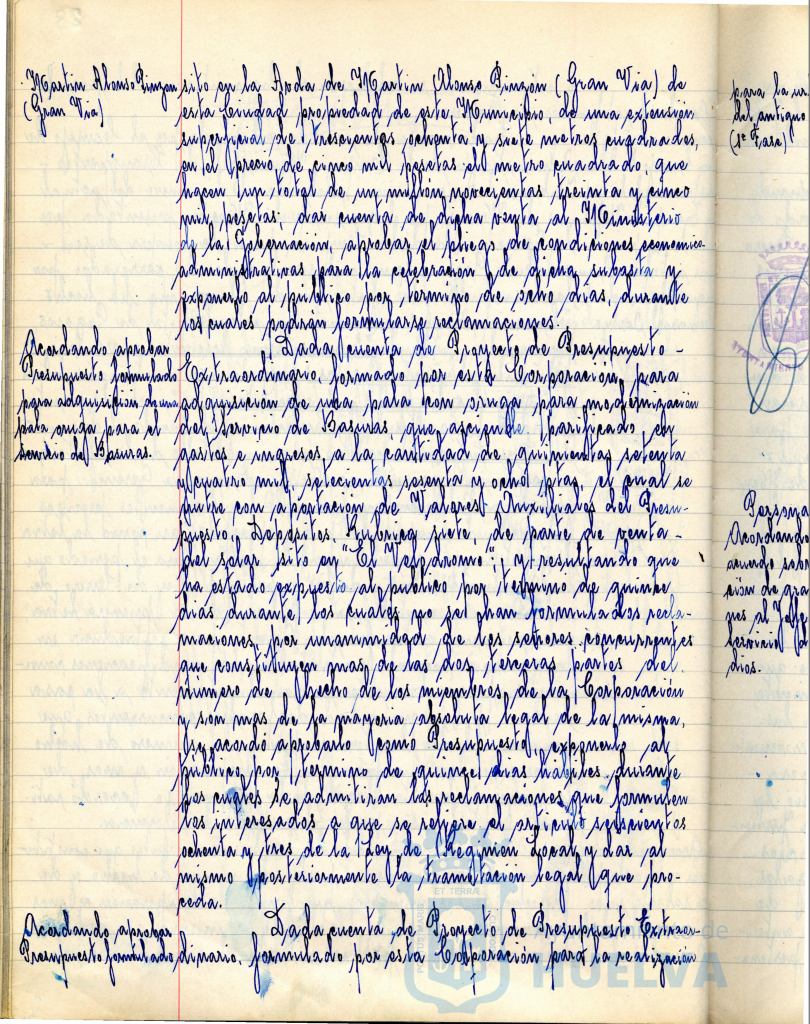 Martin Alonso Pinzon
(Gran Via)
sito en la Avda de Martin Alonso Pinzón (Gran Via) de
esta Ciudad propiedad de este Municipio, de una extensión
superficial de trescientos ochenta y siete metros cuadrados,
en el precio de cinco mil pesetas el metro cuadrado, que
hacen un total de un millón novecientas treinta y cinco
mil pesetas; dar cuenta de dicha venta al Ministerio
de la Gobernación, aprobar el pliego de condiciones economico-
administrativas para la celebración de dicha subasta y
exponerlo al público por término de ocho dias, durante
los cuales podrán formularse reclamaciones.
Acordando aprobar
Presupuesto formulado
para adquisición de una
pala oruga para el
servicio de Basuras.
Dada cuenta de Proyecto de Presupuesto
Extraordinario, formado por esta Corporación para
adquisición de una pala con oruga para modernización
del Servicio de Basuras, que asciende nivelado en
gastos e ingresos, a la cantidad de quinientas setenta
y cuatro mil, setecientas sesenta y ocho ptas, el cual se
nutre con aportación de Valores Auxiliares del Presu-
puesto, Depositos, Rubrica siete, de parte de venta
del solar sito en "El Velodromo"; y resultando que
ha estado expuesto al publico por termino de quince
dias, durante los cuales no se han formulados recla-
maciones, por unanimidad de los señores concurrentes
que constituyen mas de las dos terceras partes del
número de hecho de los miembros de la Corporación
y son mas de la mayoria absoluta legal de la misma,
se acordó aprobarlo como Presupuesto, exponerlo al
público por termino de quince dias hábiles, durante
los cuales se admitiran las reclamaciones que formulen
los interesados a que se refiere el articulo seiscientos
ochenta y tres de la Ley de Regimen Local, y dar al
mismo posteriormente la tramitación legal que pro-
ceda.
Acordando aprobar
Presupuesto formulado
Dada cuenta de Proyecto de Presupuesto Extraor-
dinario, formulado por esta Corporación para la realización
para la ur
del antiguo
(1ª Fase)
Persona
Acordando
acuerdo sobr
ción de gra
nes al Jefe
Servicio
dios.
de
HUELVA